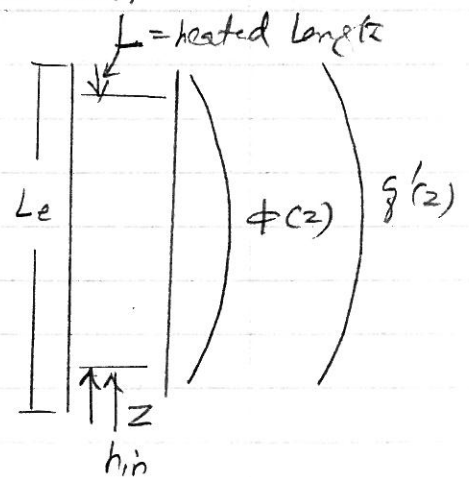 L = heated Length
Le
ϕ(z)
q'(z)
z
hin